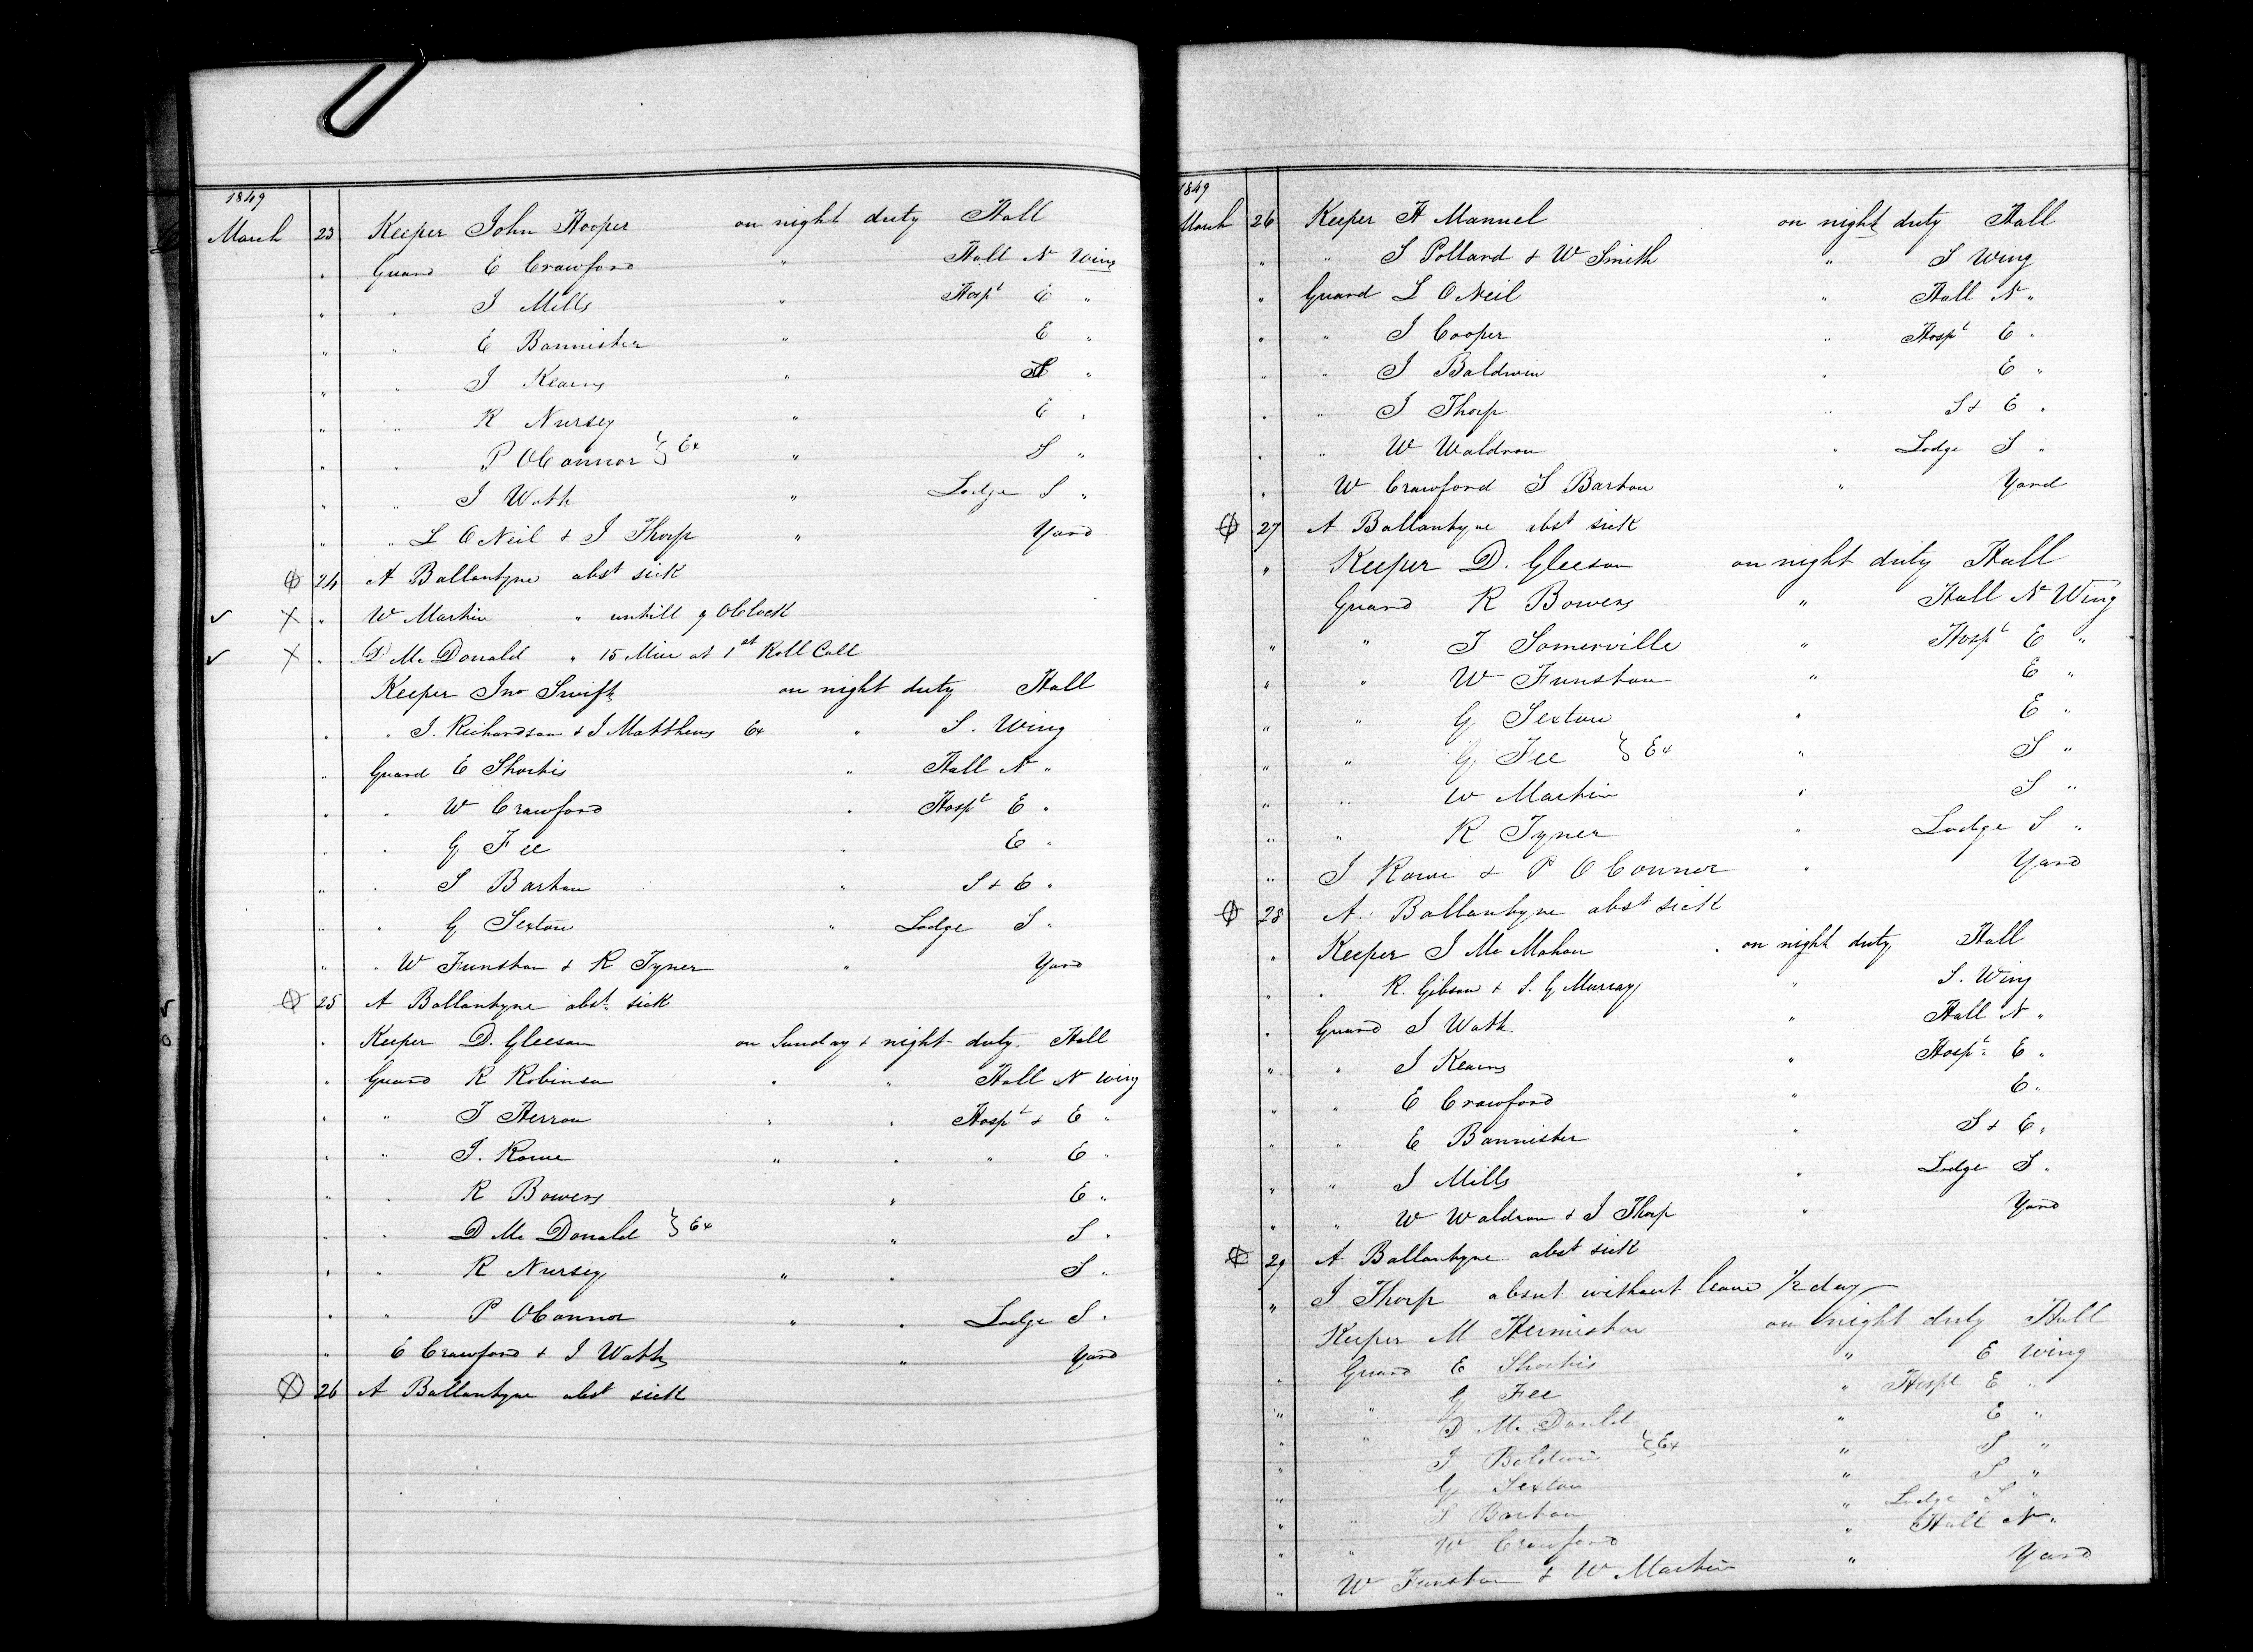 1849
March 23 Keeper John Hooper on night duty Hall
" Guard E Crawford " Hall N Wing
" " J Mills " Hospt E "
" " E Bannister " E "
" " J Kearns " "
" " R Nursey " E "
" " P OConnor } Ex " S "
" " J Watt " Lodge S "
" " L ONeil & J Thorp " Yard
24 A Ballantyne abst sick
✓ X " W Martin " untill 9 OClock
✓ X " D McDonald " 15 Min at 1st Roll Call
Keeper Jno Swift on night duty Hall
" " J. Richardson & J Matthews Ex " S. Wing
" Guard E Shortis " Hall N "
" " W Crawford " Hospt E "
" " G Fee " E "
" " S Barton " S & E "
" " G Sexton " Lodge S "
" " W Funston & R Tyner " Yard
25 A Ballantyne abst sick
" Keeper D. Gleeson on Sunday & night duty. Hall
" Guard R Robinson " " Hall N Wing
" " J Herron " " Hospt & E "
" " J. Rowe " " " E "
" " R Bowers " E "
" " D McDonald } Ex " S "
" " R Nursey " " S "
" " P OConnor " " Lodge S "
" E Crawford & J Watt " Yard
26 A Ballantyne abst sick
1849
March 26 Keeper H Manuel on night duty Hall
" " S Pollard & W Smith " S Wing
" Guard L ONeil " Hall N "
" " J Cooper " Hospt E "
" " J Baldwin " E "
" " J Thorp " S & E "
" " W Waldron " Lodge S "
" W Crawford S Barton " Yard
27 A Ballantyne abst sick
" Keeper D. Gleeson on night duty Hall
Guard R Bowers " Hall N Wing
" " J Somerville " Hospt E "
" " W Funston " E "
" " G Sexton " E "
" " G Fee } Ex " S "
" " W Martin " S "
" " R Tyner " Lodge S "
" J Rowe & P OConnor " Yard
28 A. Ballantyne abst sick
" Keeper J McMahon " on night duty Hall
" " R. Gibson & S. G Murray " S. Wing
" Guard J Watt " Hall N "
" " J Kearns " Hospt E "
" " E Crawford " E "
" " E Bannister " S & E "
" " J Mills " Lodge S "
" " W Waldron & J Thorp " Yard
29 A Ballantyne abst sick
" J Thorp absnt without leave 1/2 day
Keeper M Hermiston on night duty Hall
" Guard E Shortis " E Wing
" " G Fee " Hospt E "
" " D McDonald " E "
" " J Baldwin } Ex " S "
" G Sexton " S "
" " S Barton " Lodge S "
" " W Crawford " Hall N "
" W Funston & W Martin " Yard